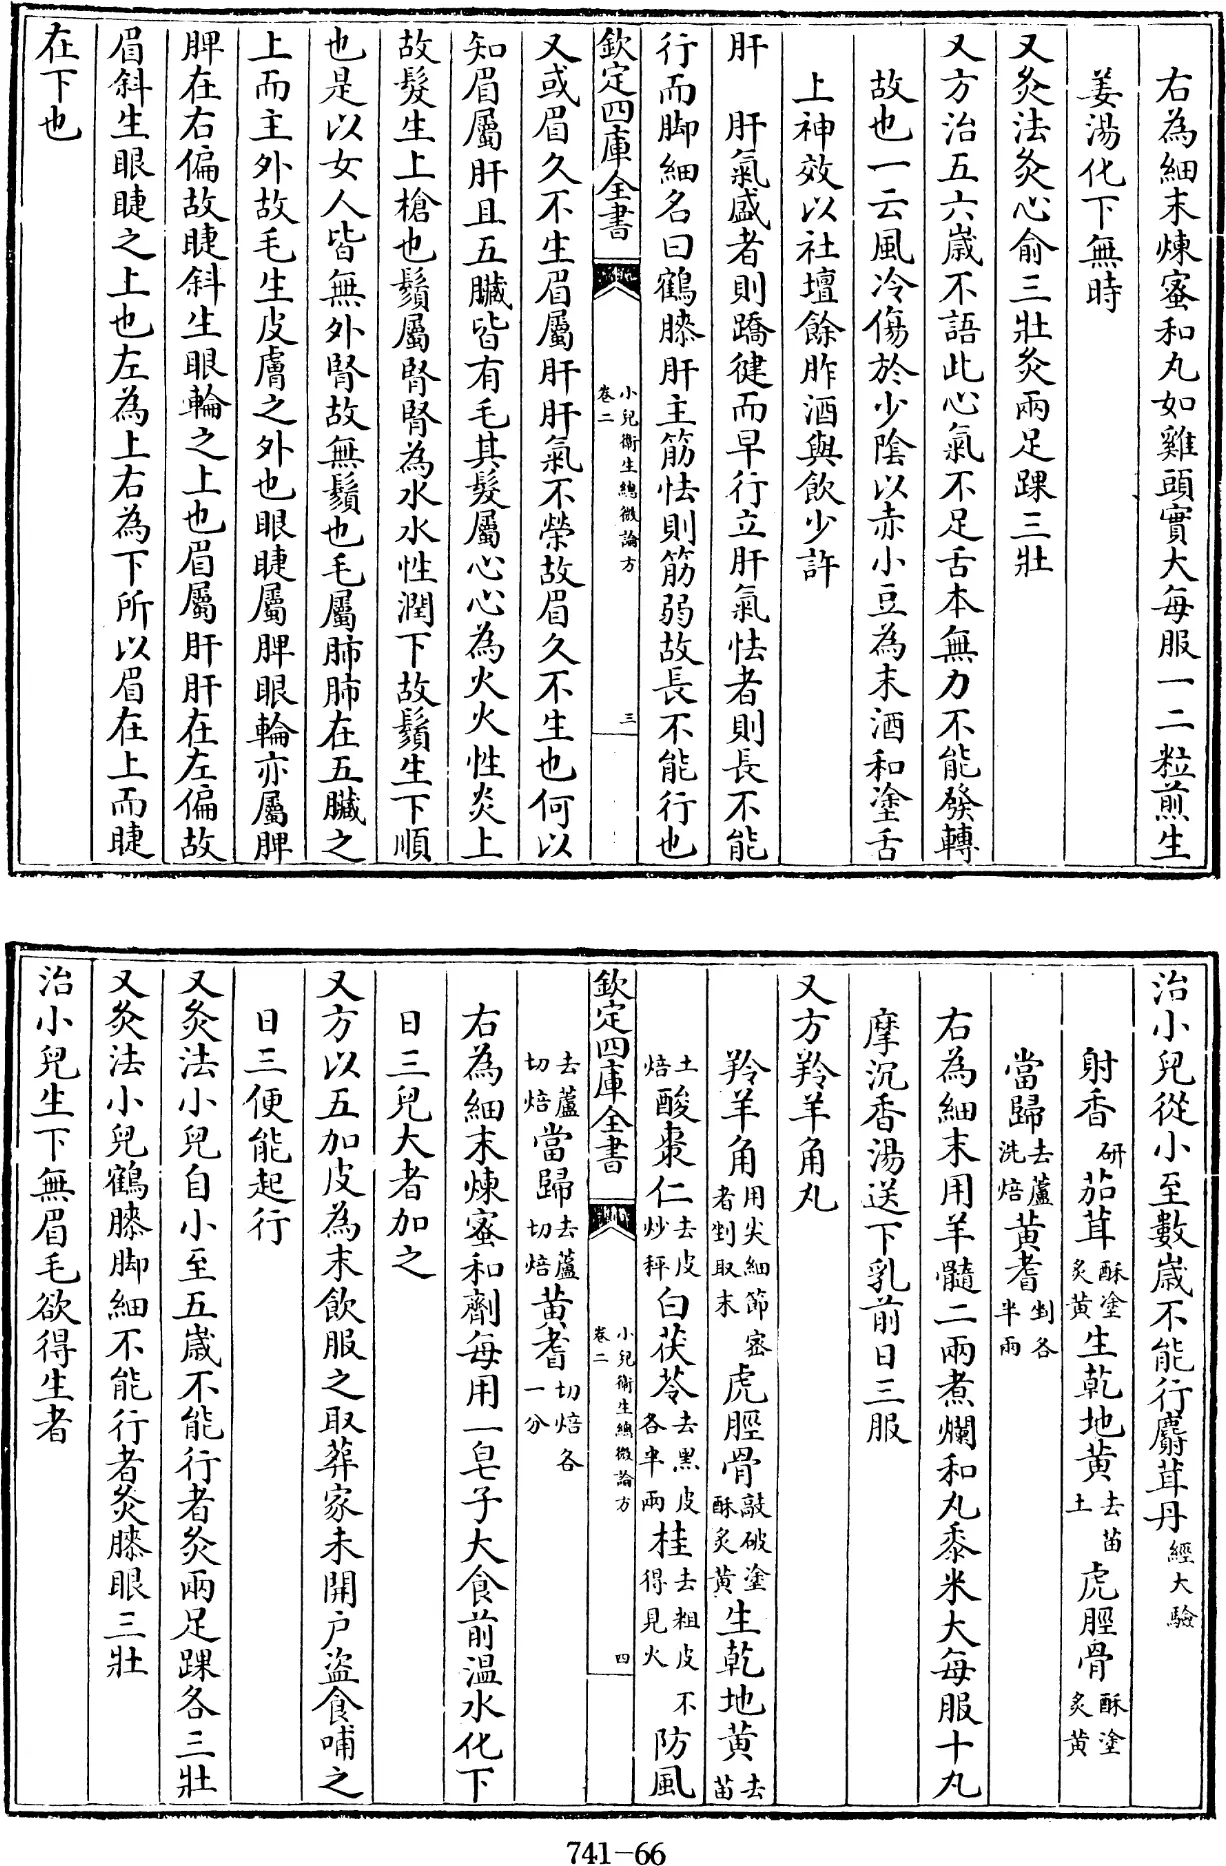 右為細末煉蜜和丸如雞頭實大每服一二粒煎生
姜湯化下無時
又灸法灸心俞三壯灸兩足踝三壯
又方治五六歲不語此心氣不足舌本無力不能發轉
故也一云風冷傷於少陰以赤小豆為末酒和塗舌
上神效以社壇餘胙酒與飲少許
肝　肝氣盛者則蹻健而早行立肝氣怯者則長不能
行而脚細名曰鶴膝肝主筋怯則筋弱故長不能行也
欽定四庫全書
小兒衛生總微論方
卷二
三
又或眉久不生眉屬肝肝氣不榮故眉久不生也何以
知眉屬肝且五臟皆有毛其髮屬心心為火火性炎上
故髮生上槍也鬚屬腎腎為水水性潤下故鬚生下順
也是以女人皆無外腎故無鬚也毛屬肺肺在五臟之
上而主外故毛生皮膚之外也眼睫屬脾眼輪亦屬脾
脾在右偏故睫斜生眼輪之上也眉屬肝肝在左偏故
眉斜生眼睫之上也左為上右為下所以眉在上而睫
在下也
治小兒從小至數歲不能行麝茸丹經大驗
射香研茄茸酥塗炙黄生乾地黄去苗土虎脛骨酥塗炙黄
當歸去蘆洗焙黄耆剉各半兩
右為細末用羊髓二兩煮爛和丸黍米大每服十丸
摩沉香湯送下乳前日三服
又方羚羊角丸
羚羊角用尖細節密者剉取末虎脛骨敲破塗酥炙黄生乾地黄去苗
土焙酸棗仁去皮炒秤白茯苓去黑皮各半兩桂去粗皮不得見火防風
欽定四庫全書
小兒衛生總微論方
卷二
四
去蘆切焙當歸去蘆切焙黄耆切焙各一分
右為細末煉蜜和劑每用一皂子大食前溫水化下
日三兒大者加之
又方以五加皮為末飲服之取葬家未開户盜食哺之
日三便能起行
又灸法小兒自小至五歲不能行者灸兩足踝各三壯
又灸法小兒鶴膝脚細不能行者灸膝眼三壯
治小兒生下無眉毛欲得生者
741-66